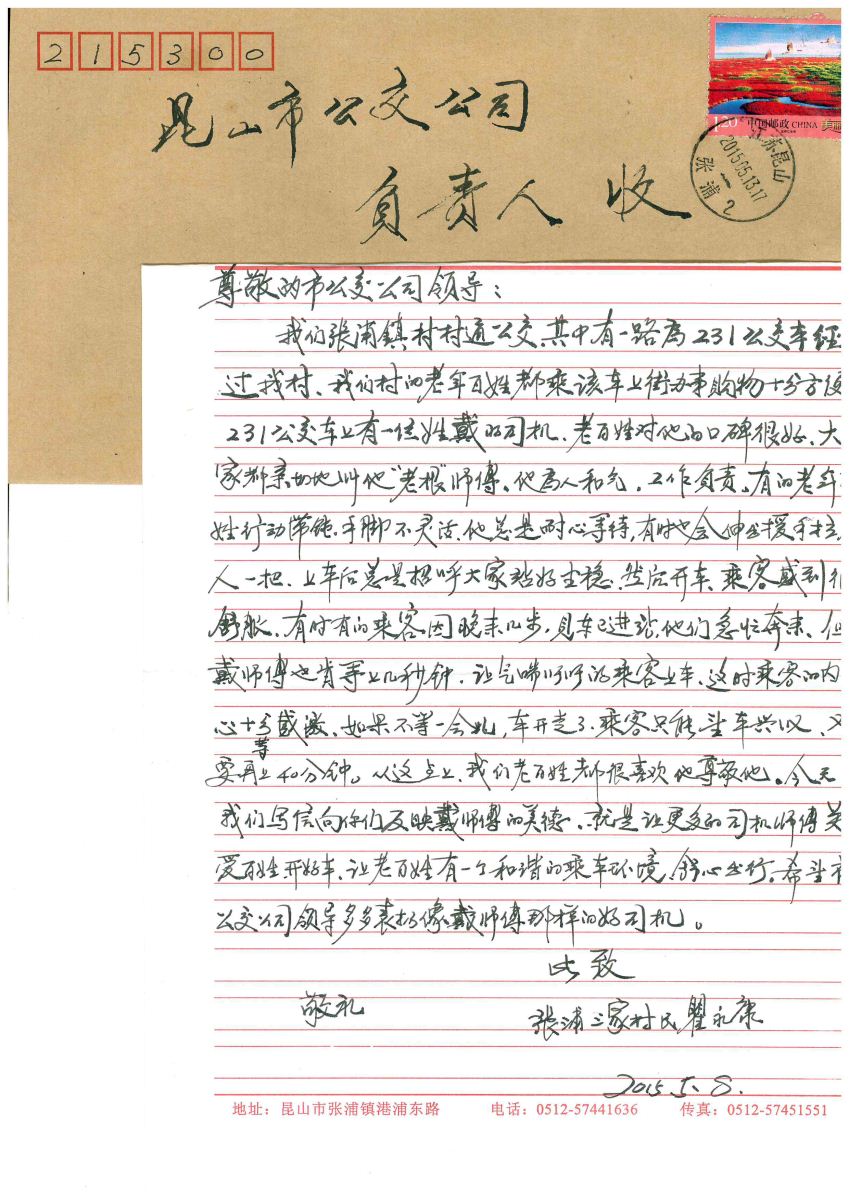 215300
昆山市公交公司
负责人 收
1.20 中国邮政 CHINA 美丽
江苏昆山
2015.05.13.17
张浦 2
尊敬的市公交公司领导：
我们张浦镇村村通公交,其中有一路为231公交车经
过我村、我们村的老年百姓都乘该车上街办事购物十分方便
231公交车上有一位姓戴的司机、老百姓对他的口碑很好、大
家都亲切地叫他“老根”师傅、他为人和气、工作负责、有的老年
姓行动带钝、手脚不灵活、他总是耐心等待,有时也会伸出援手拉
人一把、上车后总是招呼大家站好坐稳、然后开车、乘客感到很
舒服、有时有的乘客因晚来几步,见车已进站,他们急忙奔来、但
戴师傅也肯等上几秒钟、让气喘吁吁的乘客上车、这时乘客的内
心十分感激、如果不等一会儿,车开走了、乘客只能望车兴叹、又
要再等上40分钟。从这点上、我们老百姓都很喜欢他尊敬他。今天
我们写信向你们反映戴师傅的美德、就是让更多的司机师傅关
爱百姓开好车、让老百姓有一个和谐的乘车环境、舒心出行。希望市
公交公司领导多多表扬像戴师傅那样的好司机。
此致
敬礼
张浦三家村民瞿永康
2015.5.8.
地址：昆山市张浦镇港浦东路 电话：0512-57441636 传真：0512-57451551